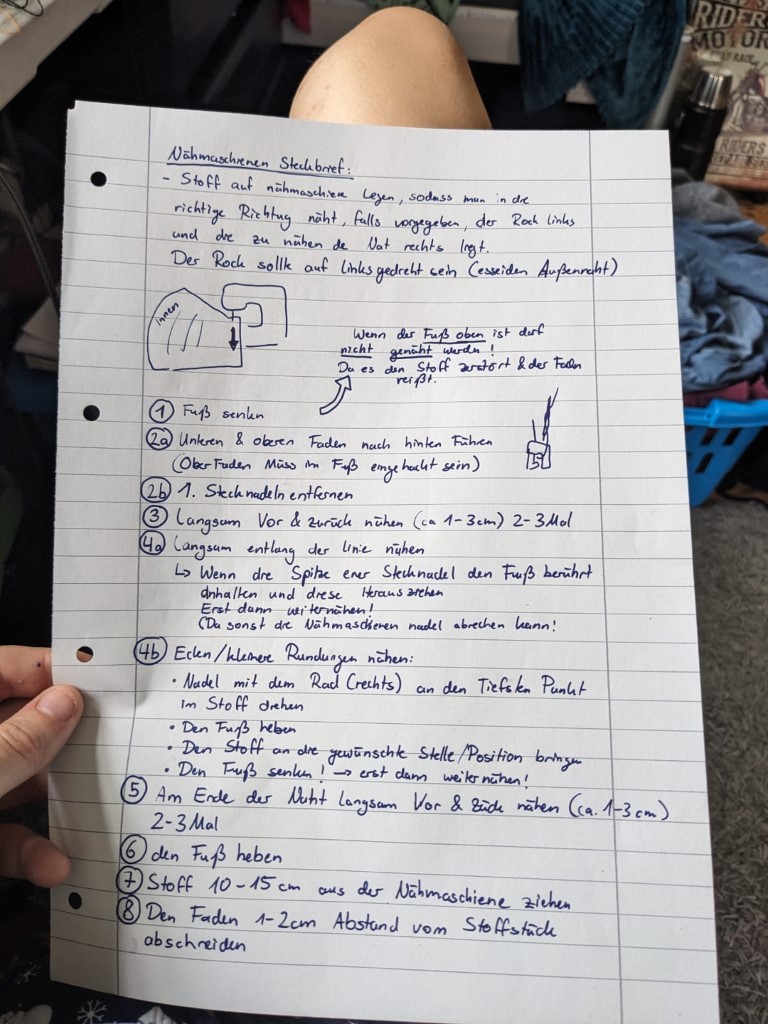 RIDERS
MOTOR
RIDERS
Nähmaschienen Steckbrief:
- Stoff auf nähmaschiene legen, sodass man in die
richtige Richtug näht, falls vorgegeben, der Rock links
und die zu nähen de Nat rechts legt.
Der Rock sollte auf links gedreht sein (esseiden Außennaht)
innen
Wenn der Fuß oben ist darf
nicht genäht werden!
Da es den Stoff zerstört & der Faden
reißt.
① Fuß senken
②a Unteren & oberen Faden nach hinten Führen
(Ober Faden Müss im Fuß eingehackt sein)
②b 1. Stecknadeln entfernen
③ Langsam Vor & zurück nähen (ca 1-3cm) 2-3 Mal
④a Langsam entlang der linie nähen
↳ Wenn die Spitze einer Stecknadel den Fuß berührt
anhalten und diese Herausziehen
Erst dann weiternähen!
(Da sonst die Nähmaschienen nadel abrechen kann!
④b Ecken/kleinere Rundungen nähen:
• Nadel mit dem Rad (rechts) an den Tiefsten Punkt
im Stoff drehen
• Den Fuß heben
• Den Stoff an die gewünschte Stelle/Position bringen
• Den Fuß senken! → erst dann weiternähen!
⑤ Am Ende der Naht langsam Vor & nähen (ca. 1-3 cm)
2-3 Mal
⑥ den Fuß heben
⑦ Stoff 10-15 cm aus der Nähmaschiene ziehen
⑧ Den Faden 1-2cm Abstand vom Stoffstück
abschneiden